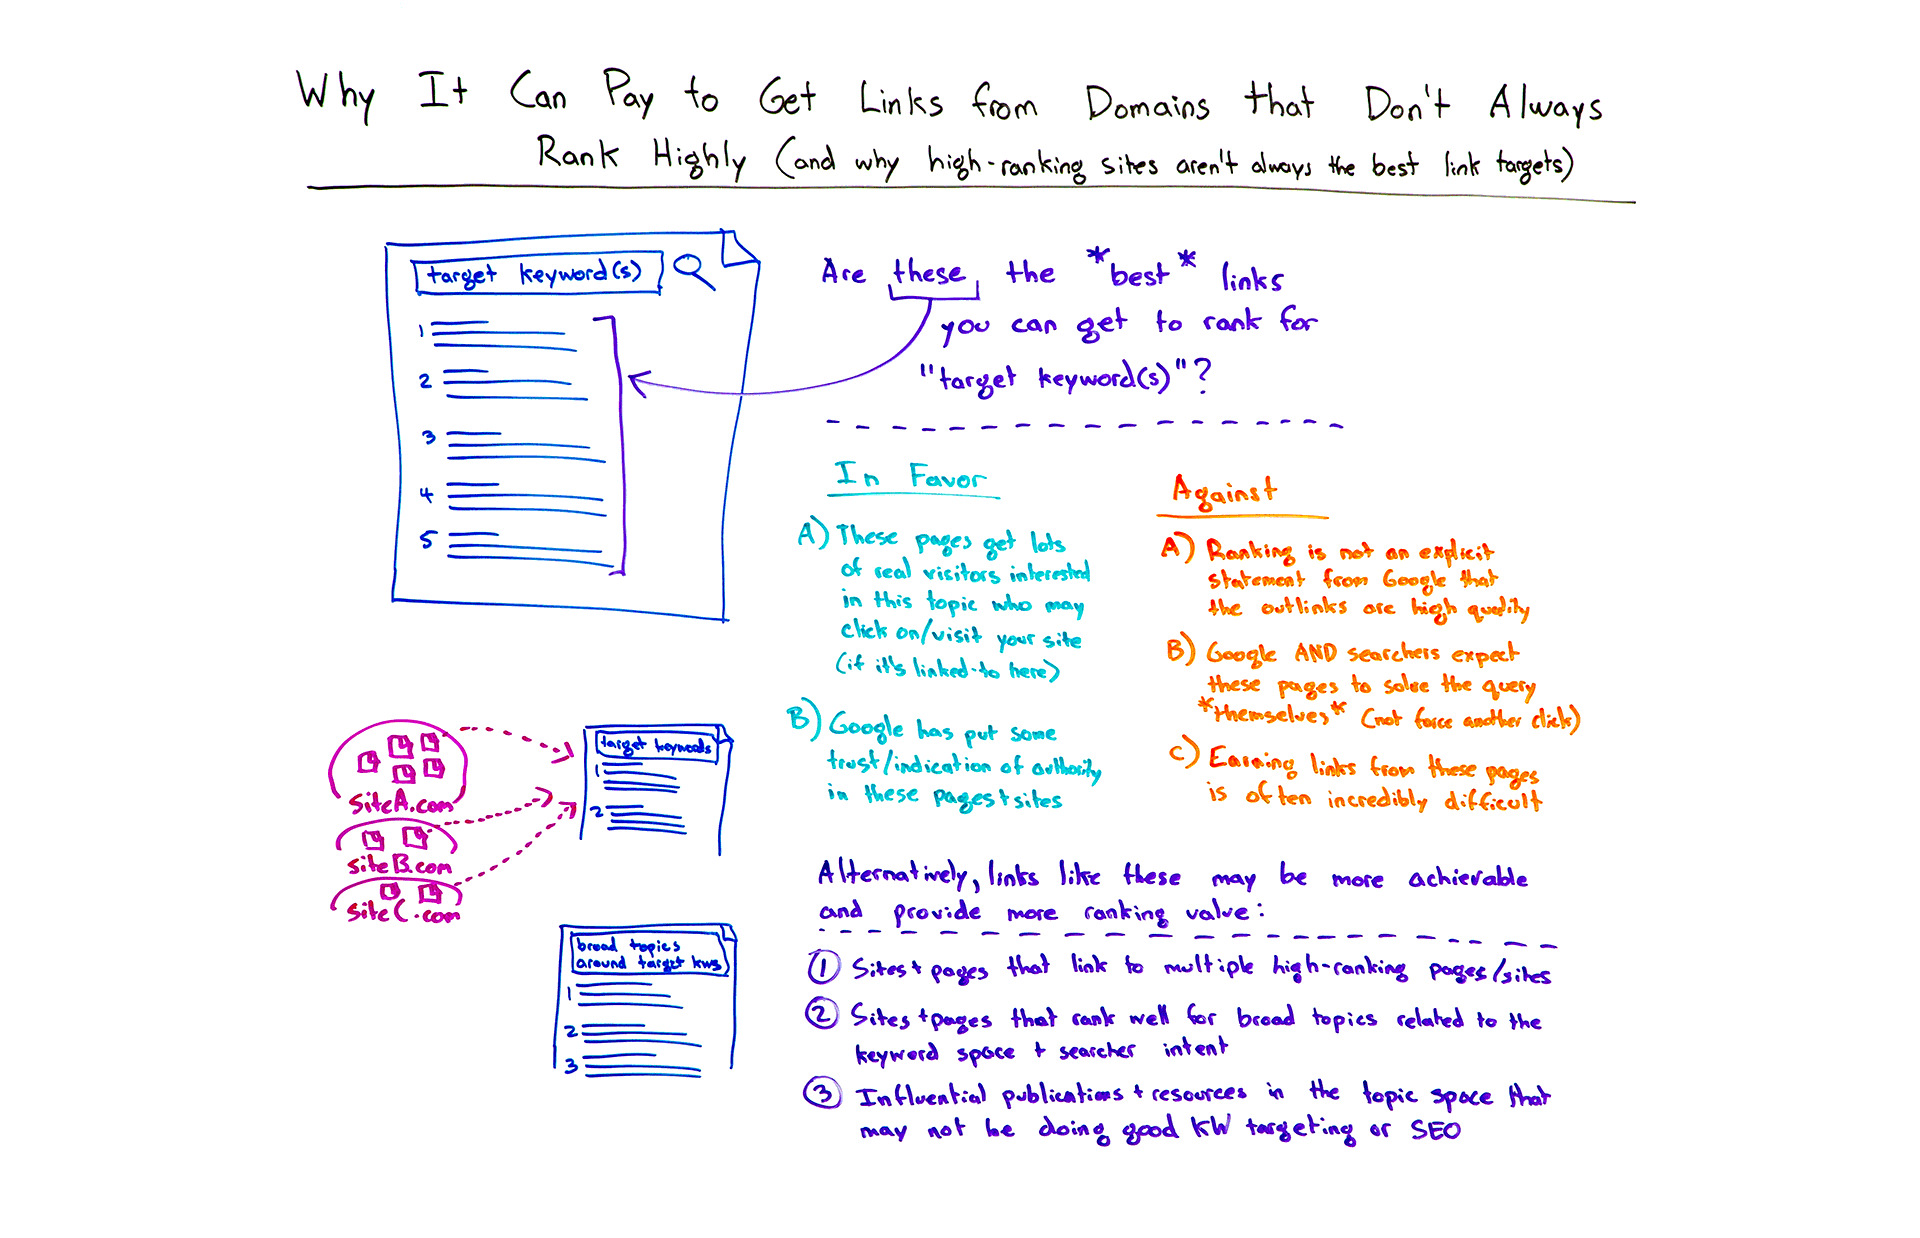 Why It Can Pay to Get Links from Domains that Don't Always
Rank Highly (and why high-ranking sites aren't always the best link targets)
target keyword(s)
1
2
3
4
5
Are these the *best* links
you can get to rank for
"target keyword(s)"?
In Favor
A) These pages get lots
of real visitors interested
in this topic who may
click on/visit your site
(if it's linked-to here)
B) Google has put some
trust/indication of authority
in these pages + sites
Against
A) Ranking is not an explicit
statement from Google that
the outlinks are high quality
B) Google AND searchers expect
these pages to solve the query
*themselves* (not force another click)
C) Earning links from these pages
is often incredibly difficult
siteA.com
siteB.com
siteC.com
target keywords
1
2
broad topics
around target kws
1
2
3
Alternatively, links like these may be more achievable
and provide more ranking value:
1 Sites + pages that link to multiple high-ranking pages/sites
2 Sites + pages that rank well for broad topics related to the
keyword space + searcher intent
3 Influential publications + resources in the topic space that
may not be doing good KW targeting or SEO